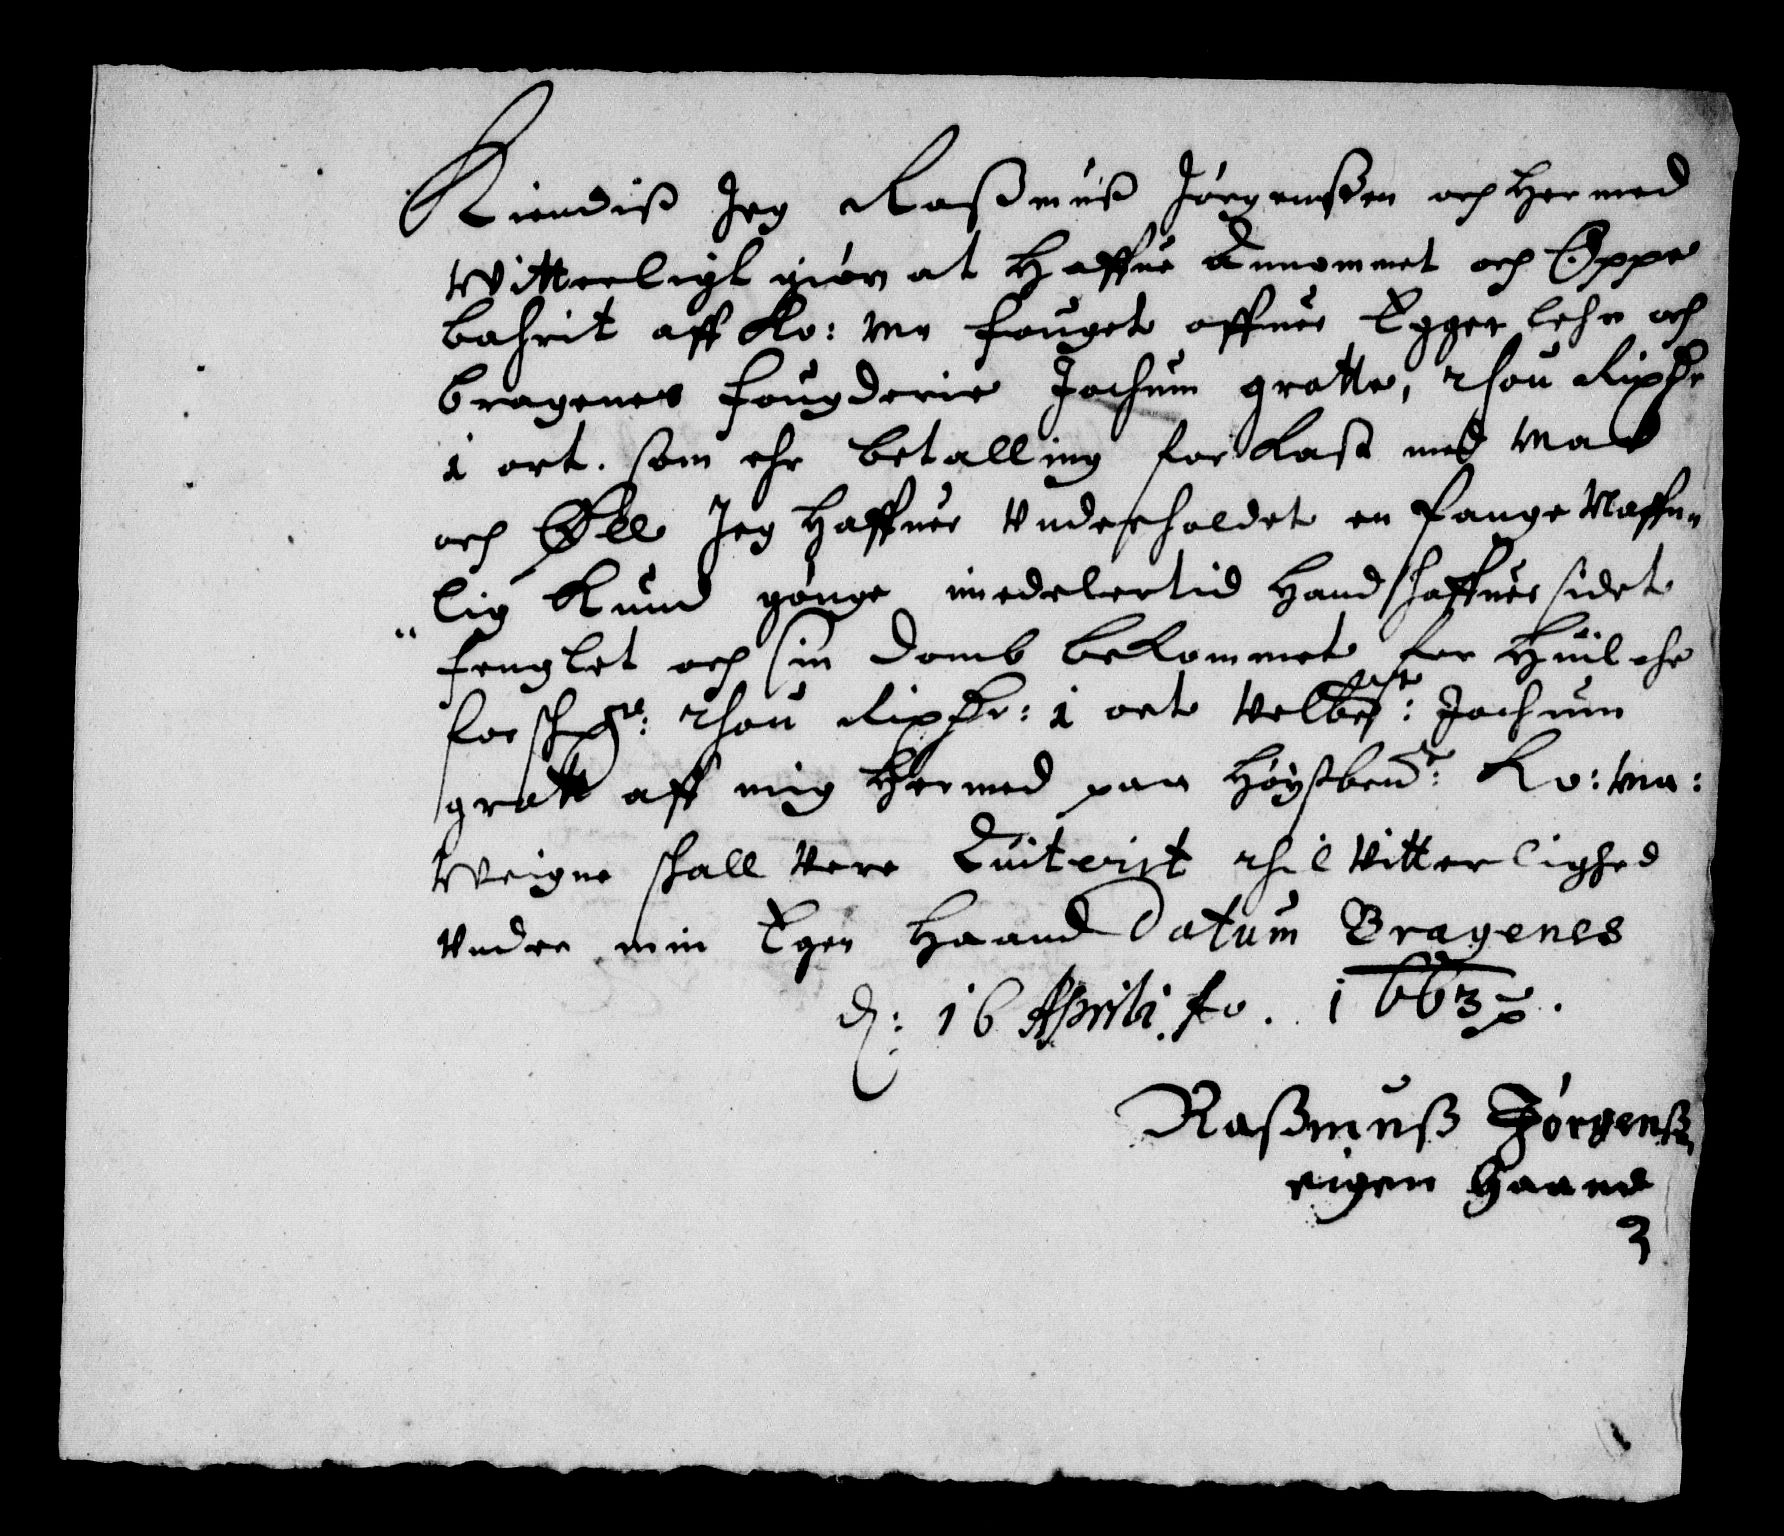 Kiendiß Jeg Raßmuß Jörgenßen och hermed
Witterligt giör at haffue Annommet och Oppe
bahrit aff Ko: Ma fougets offuer Egger lehn och
bragenes fougderie Jochum grotte, thou Rixdr
1 ort. som ehr betalling for Kast med Mad
och Øll Jeg haffuer Underholdet en fange Naffn„
lig Knud gonge imedelertid hand haffuer sidet
fenglet och sin domb bekommet for huilche
forschne: thou Rixdr: 1 ort Velbete: Jochum
grott aff mig hermed paa høystbente: Ko: Ma:
Weigne schall Vere Quiterit thil Vitterlighed
Under min Egen haand Datum Bragenes
d: 16 Aprili Ao. 1663
Raßmuß Jörgenß
eigen haand